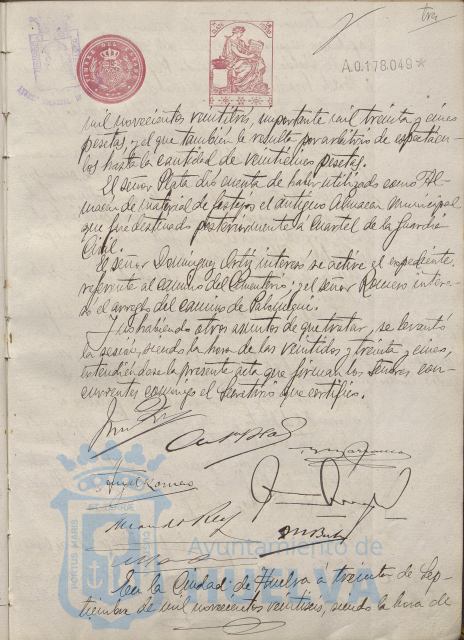 tres
A.0.178.049*
mil novecientos veintitres, importante mil treinta y cinco
pesetas, y el que tambien le resulta por arbitrio de espectácu-
los hasta la cantidad de veinticinco pesetas.
El señor Plata dió cuenta de haber utilizado como Al-
macen de material de festejos el antiguo Almacen Municipal
que fue destinado posteriormente á Cuartel de la Guardia
Civil.
El señor Dominguez Ortiz interesó se active el expediente
referente al camino del Cementerio, y el señor Romero intere-
só el arreglo del camino de
Y no habiendo otros asuntos de que tratar, se levantó
la sesión, siendo la hora de las veintidos y treinta y cinco,
extendiendose la presente acta que firman los señores con-
currentes conmigo el Secretario que certifico.
Ayuntamiento de
HUELVA
PORTUS MARIS
En la Ciudad de Huelva á treinta de Sep-
tiembre de mil novecientos veintiseis, siendo la hora de